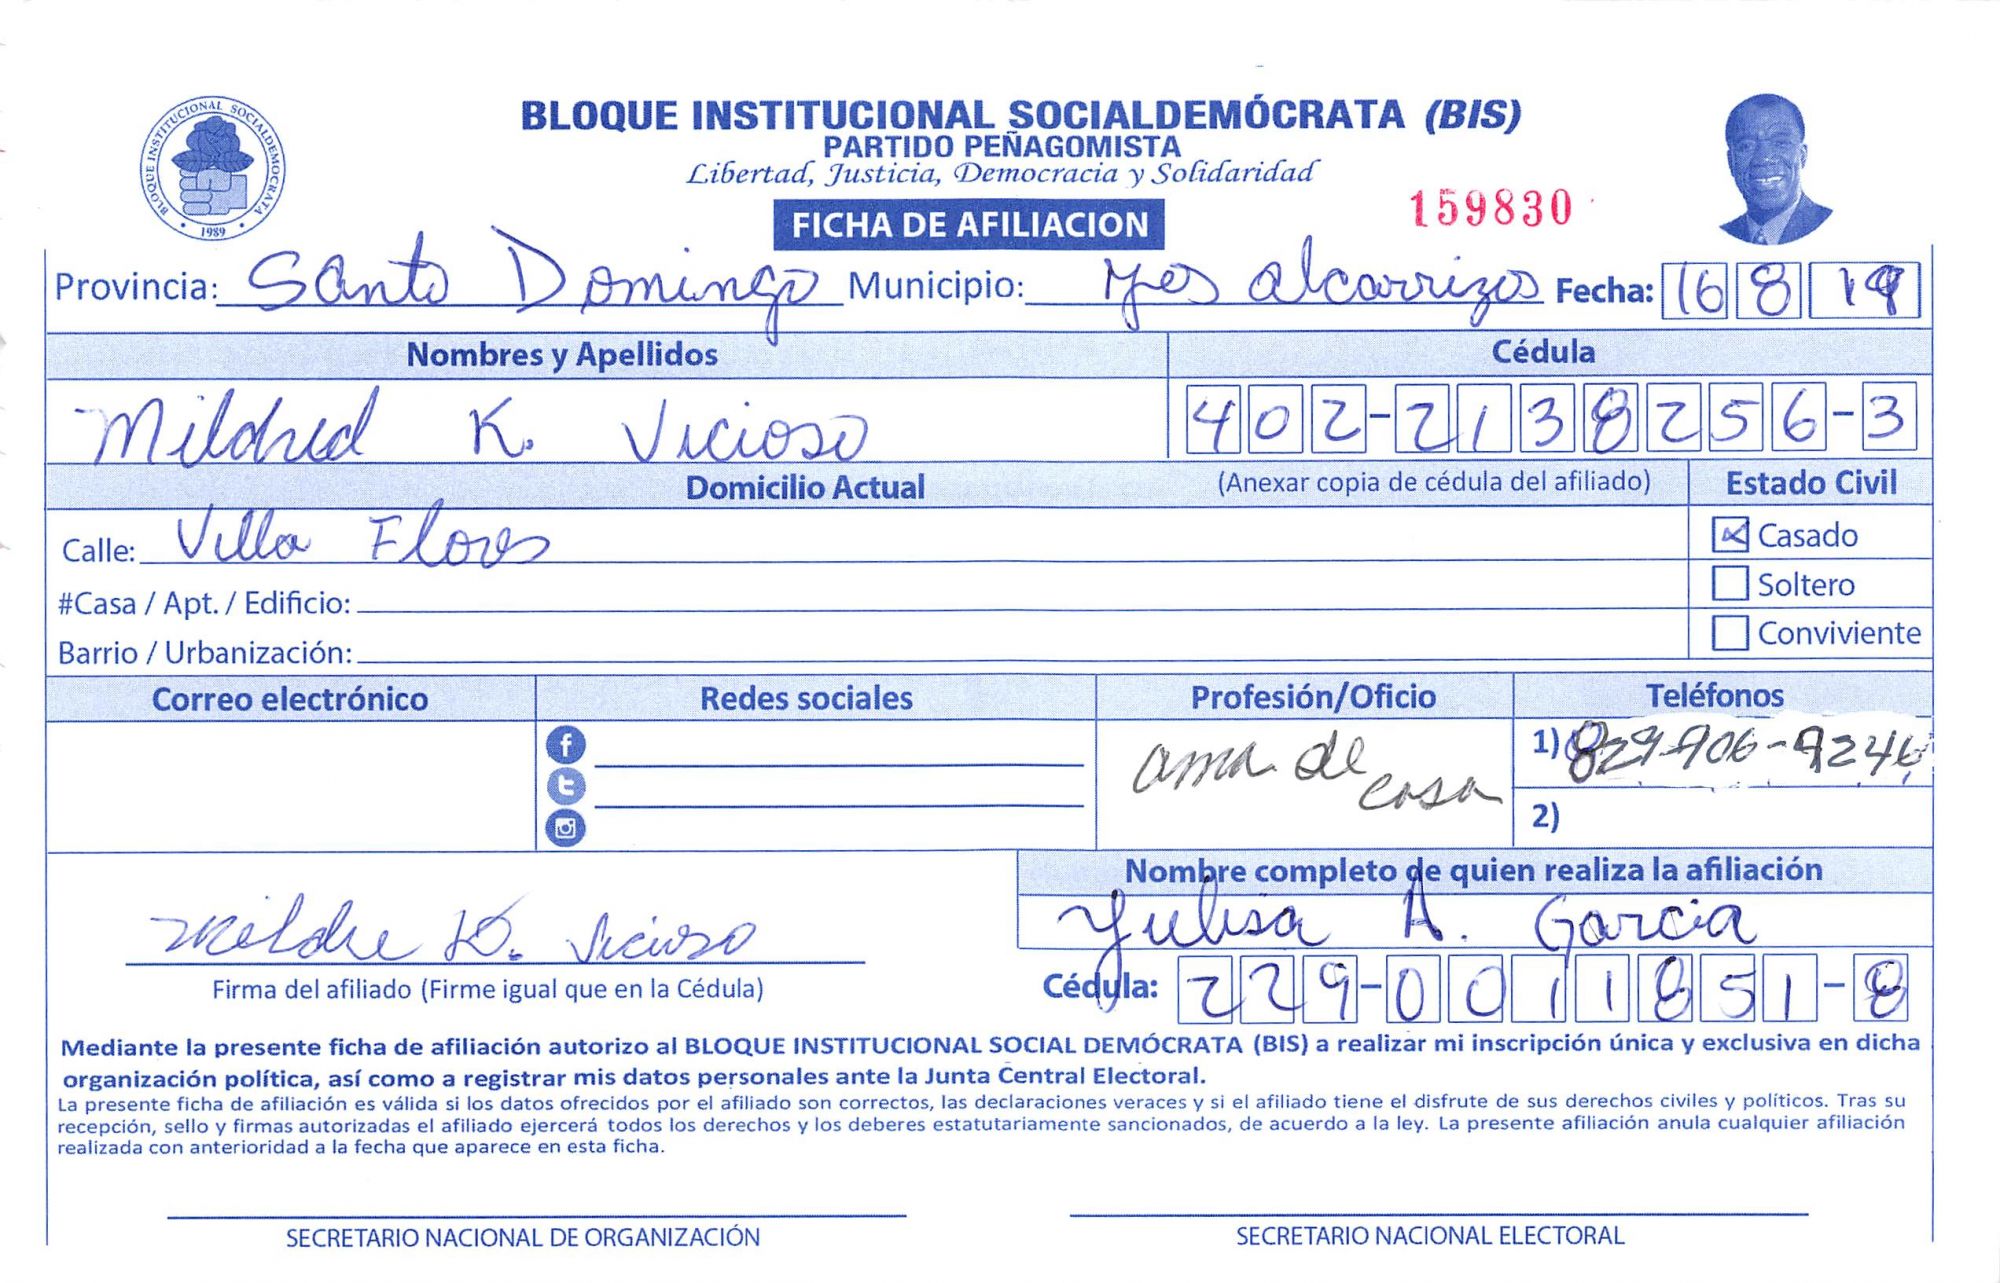 BLOQUE INSTITUCIONAL SOCIALDEMÓCRATA (BIS)
PARTIDO PEÑAGOMISTA
Libertad, Justicia, Democracia y Solidaridad
BLOQUE INSTITUCIONAL SOCIALDEMOCRATA
1989
159830
FICHA DE AFILIACION
Provincia: Santo Domingo Municipio: alcarrizos Fecha: 16 8 19
Nombres y Apellidos Cédula
Mildred K. Vicioso 402-2138256-3
Domicilio Actual (Anexar copia de cédula del afiliado) Estado Civil
Calle: Villa Flores Casado
#Casa / Apt. / Edificio: Soltero
Barrio / Urbanización: Conviviente
Correo electrónico Redes sociales Profesión/Oficio Teléfonos
ama de casa 1) 829-906-9246
2)
Nombre completo de quien realiza la afiliación
Yulisa A. Garcia
Mildre K. Vicioso
Firma del afiliado (Firme igual que en la Cédula) Cédula: 229-0011851-8
Mediante la presente ficha de afiliación autorizo al BLOQUE INSTITUCIONAL SOCIAL DEMÓCRATA (BIS) a realizar mi inscripción única y exclusiva en dicha
organización política, así como a registrar mis datos personales ante la Junta Central Electoral.
La presente ficha de afiliación es válida si los datos ofrecidos por el afiliado son correctos, las declaraciones veraces y si el afiliado tiene el disfrute de sus derechos civiles y políticos. Tras su
recepción, sello y firmas autorizadas el afiliado ejercerá todos los derechos y los deberes estatutariamente sancionados, de acuerdo a la ley. La presente afiliación anula cualquier afiliación
realizada con anterioridad a la fecha que aparece en esta ficha.
SECRETARIO NACIONAL DE ORGANIZACIÓN SECRETARIO NACIONAL ELECTORAL